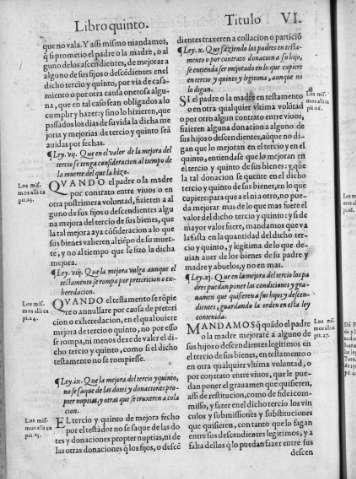 Libro quinto.
Titulo VI.
que no vala. Y assi mismo mandamos,
q̃ si prometio el padre o la madre, o al
guno de los ascendientes, de mejorar a
alguno de sus fijos o descẽdientes en el
dicho tercio y quinto, por via de casa-
miento o por otra causa onerosa algu-
na, que en tal caso sean obligados a lo
complir y hazer y sino lo hizieren, que
passados los dias de su vida la dicha me
joria y mejorias de tercio y quinto seã
auidas por fechas.
¶Ley. vij. Que en el valor de la mejora del
tercio se tenga consideracion al tiempo de
la muerte del que la hizo.
Los mis-
mos alli ca
pit.23.
QVANDO el padre o la madre
por contrato entre viuos o en
otra postrimera voluntad, fizieren a al
guno de sus fijos o descendientes algu
na mejora del tercio de sus bienes, que
la tal mejora aya cõsideracion a lo que
sus bienes valieren al tiẽpo de su muer-
te, y no al tiempo que se fizo la dicha
mejora.
¶Ley. viij. Que la mejora valga aunque el
testamento se rompa por pretericion o ex-
heredacion.
Los mis-
mos alli ca
pit.24.
QVANDO el testamento se rõpie
re o annullare por causa de preteri
cion o exheredacion, en el qual ouiere
mejora de tercio o quinto, no por esso
se rompa, ni menos dexe de valer el di-
cho tercio y quinto, como si el dicho
testamento no se rompiesse.
¶Ley. ix. Que la mejora del tercio y quinto,
no se saque de las dotes y donaciones pro-
pter nuptias, y otras que se truxeren a cola
cion.
Los mis-
mos alli ca
pit.25.
EL tercio y quinto de mejora fecho
por el testador no se saque de las do
tes y donaciones propter nuptias, ni de
las otras donaciones q̃ los fijos, o descẽ
traxeren a collacion o particiõ
¶Ley. x. Que faziendo los padres en testa-
mento o por contrato donacion a su hijo,
se entienda ser mejorado en lo que cupiere
en tercio y quinto y legitima, aunque no
lo digan.
SI el padre o la madre en testamento
o en otra qualquier vltima volũtad
o por otro algun contrato entre viuos,
fizieren alguna donacion a alguno de
sus hijos o descendientes, aũque no di-
gan que lo mejoran en el tercio y en el
quinto, entiendase que lo mejoran en
el tercio y quinto de sus bienes: y que
la tal donacion se quente en el dicho
tercio y quinto de sus bienes, en lo que
cupiere para que a el ni a otro, no pue-
da mejorar mas de lo que mas fuere el
valor del dicho tercio y quinto: y si de
mayor valor fuere, mandamos que va
la fasta en la quantidad del dicho ter-
cio y quinto, y legitima de lo que de-
uian auer de los bienes de su padre y
madre y abuelos, y no en mas.
¶Ley. xj. Que en la mejora del tercio los pa
dres puedan poner las condiciones y gra-
uamen que quisieren a sus hijos y descen-
dientes, guardando la orden en esta ley
contenida.
Los mis-
mos alli ca
pit.27.
MANDAMOS q̃ quãdo el padre
o la madre mejorare a alguno de
sus hijos o descendientes legitimos en
el tercio de sus bienes, en testamento o
en otra qualquier vltima voluntad, o
por contrato entre viuos, que le pue-
dan poner el grauamen que quisieren,
assi de restitucion, como de fideicom-
misso, y fazer en el dicho tercio los vin
culos y submissiones y substituciones
que quisieren, con tanto que lo fagan
entre sus descendientes legitimos, y a
falta dellos q̃ lo puedan fazer entre sus
descen